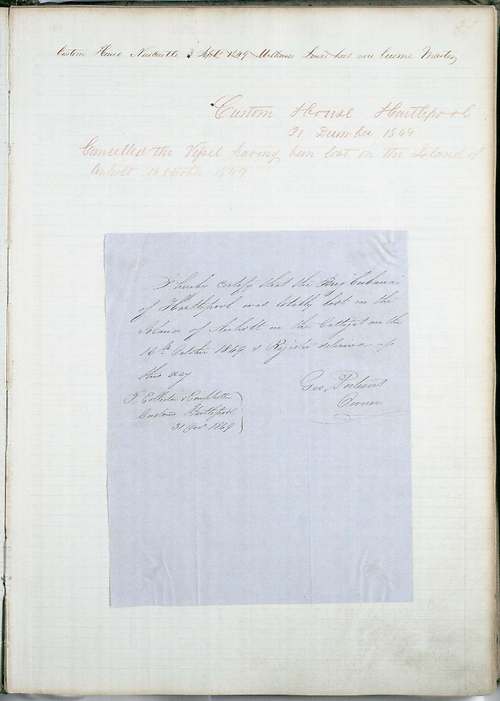 Custom House Newcastle 3 Sept 1849 Matthew Jones has now become Master
Custom House Hartlepool
31 December 1849
Cancelled the Vessel having been lost on the Island of
Anholt 14 October 1849
I hereby certify that the Brig
of Hartlepool was totally lost on the
Island of Anholt in the Cattegat on the
14th October 1849 & Register delivered up
this day
Geo
Owner
To Collector & Comptroller
Customs Hartlepool
31 1849